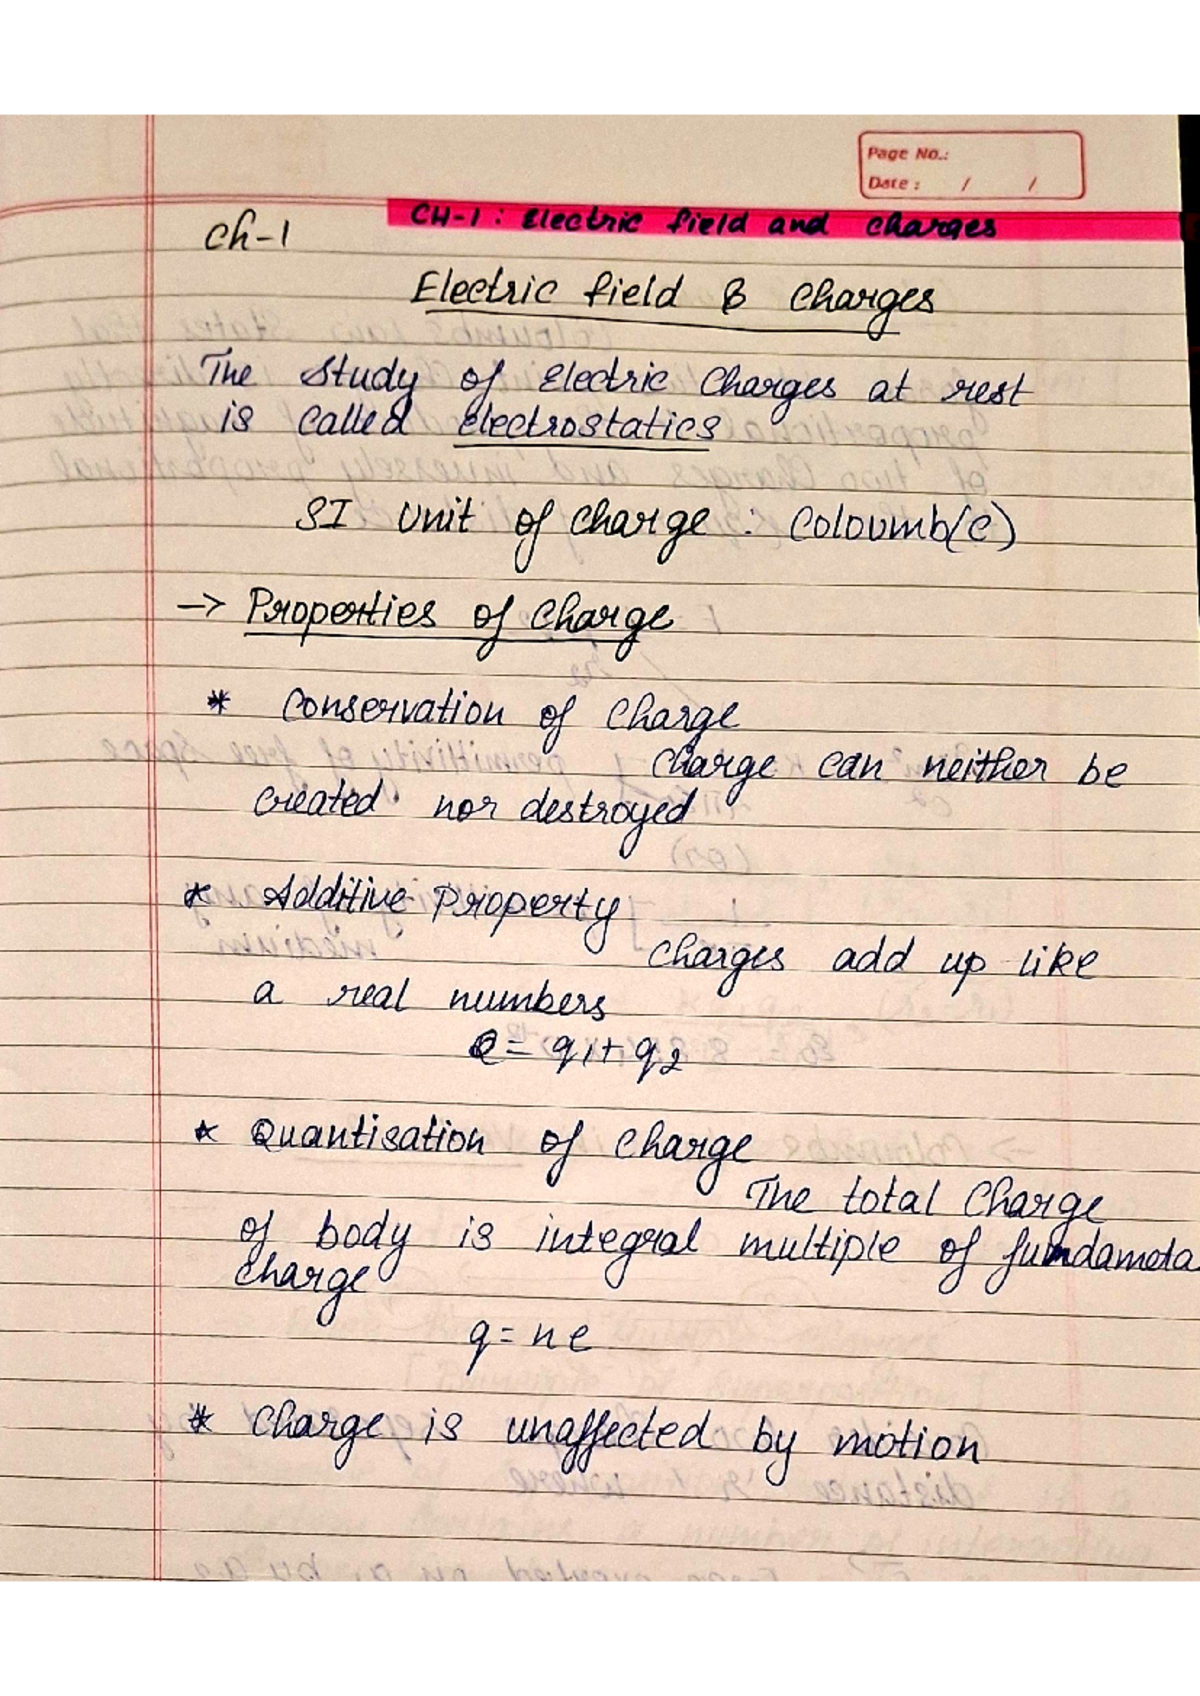 Page No.:
Date : / /
CH-1 : Electric field and charges
Ch-1
Electric field & Charges
The Study of Electric Charges at rest
is called electrostatics
SI Unit of charge : Coloumb(C)
-> Properties of Charge
* Conservation of Charge
Charge can neither be
created nor destroyed
* Additive Property
Charges add up like
a real numbers
Q = q1 + q2
* Quantisation of Charge
The total Charge
of body is integral multiple of fundameta
charge
q = ne
* Charge is unaffected by motion